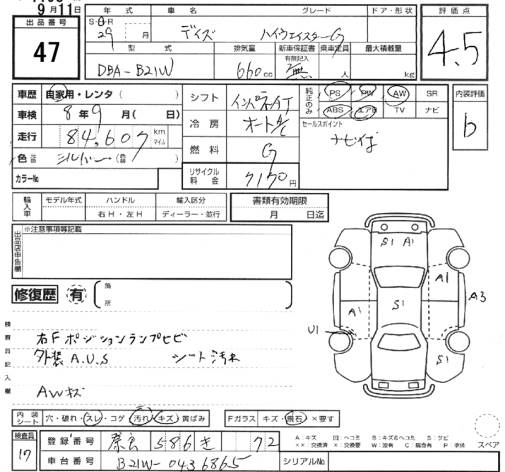 9月11日
出品番号 47
年式 車名 グレード ドア・形状 評価点
S・H・R 29 月 デイズ ハイウェイスターG 4.5
型式 排気量 新車保証書 有限記入 乗車定員 最大積載量
DBA-B21W 660cc 無 人 kg
車歴 自家用・レンタ( )
車検 8年9月( 日)
走行 84,607 km マイル
色 シルバー
カラーNo.
シフト インパネAT
冷房 オートA/C
燃料 G
リサイクル料金 7170円
純正のみ PS PW AW SR
ABS エアB TV ナビ
セールスポイント
ナビ付
内装評価 b
輸入車 モデル年式 ハンドル 輸入区分
右H・左H ディーラー・並行
書類有効期限
月 日迄
出品店申告欄 ※注意事項等記載
修復歴 有 箇所
検査員記入欄
右Fポジションランプヒビ
外装A.U.S シート汚れ
AWキズ
S1 A1
A1 A3
A1 S1
U1 S1
内装シート 穴・破れ・スレ・コゲ 汚れ キズ 黄ばみ Fガラス キズ・飛石×要す
検査員 17
登録番号 奈良 586 き 72
車台番号 B21W-0436865 シリアルNo.
A:キズ U:ヘコミ B:キズ&ヘコミ S:サビ
スペア